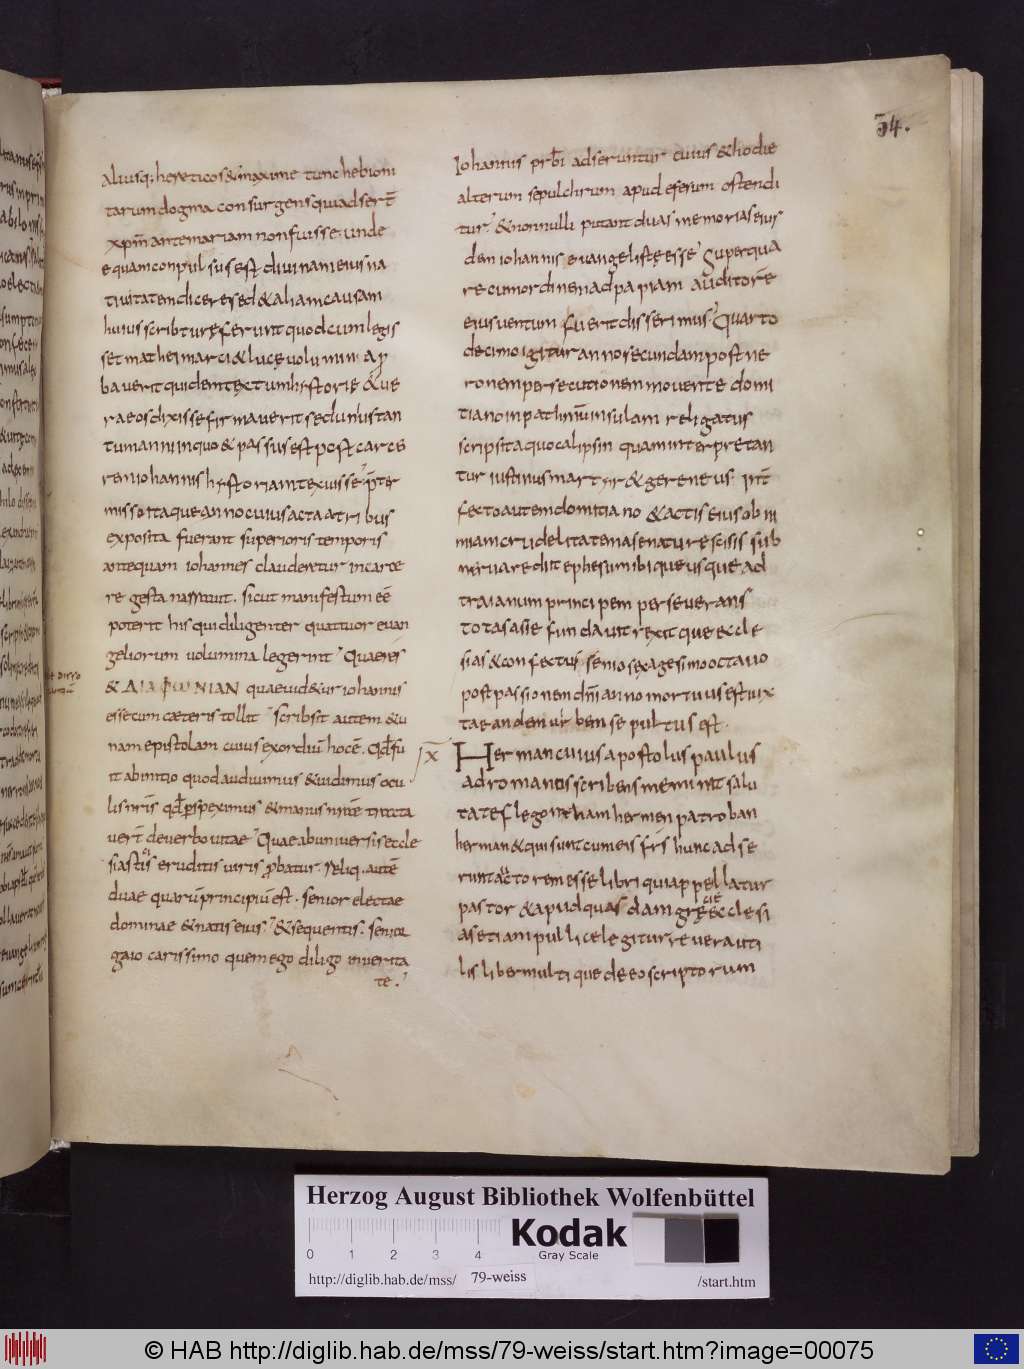 34.
aliusq; hereticos & maxime tunc hebioni
tarum dogma consurgens qui adsert̄
xpm̄ ante mariam non fuisse. unde
& quam conpulsus est divinam eius na
tivitatem dicere. sed & aliam causam
huius scribturę ferunt quod cum legis
set mathei marci & lucę volumin. ap
baverit quidem textum historię & ve
ra eos dixisse firmaverit sed unius tan
tum anni in quo & passus est post carce
rem iohannis hystoriam texuisse. p̄ter
misso itaque anno cuius acta a tribus
exposita fuerant superioris temporis
antequam iohannes clauderetur in carce
re gesta narravit. sicut manifestum eē
poterit his qui diligenter quattuor evan
geliorum volumina legerint. Quae res
& ΔΙΑΦωΝΙΑΝ quae vid&ur iohannis
esse cum cæteris tollit. Scribsit autem & u
nam epistolam cuius exordiū hoc ē. Qd̄ fu
it ab initio quod audivimus & vidimus ocu
lis nr̄is qd̄ pspeximus & manus nr̄ae
ver̄ de verbo vitae. Quae ab universis eccle
siasticis eruditis viris pbatur. Reliq. autē
duae quarū principiū est. senior electae
dominae & natis eius. & sequentis. senior
gaio carissimo quem ego diligo in verita
te.
Iohannis prb̄i adseruntur cuius & hodie
alterum sepulchrum apud efesum ostendi
tur. & nonnulli putant duas memorias eius
dem iohannis evangelistę esse. Super qua
re cum ordinem ad papiam auditorē
eius ventum fuerit disserimus. Quarto
decimo igitur anno secundam post ne
ronem persecutionem movente domi
tiano in pathmū insulam religatus
scripsit aquocalipsin quam interpretan
tur iustinus martyr & gereneus. Int̄
fecto autem domitiano & actis eius ob ni
miam crudelitatem a senatu rescisis sub
nerva rediit ephesum ibique usque ad
traianum principem perseverans
totas asię fundavit rexitque eccle
sias & confectus senio sexagesimo octavo
post passionem dn̄i anno mortuus est iux
ta eandem urbem sepultus est.
IX
Herman cuius apostolus paulus
ad romanos scribens meminit salu
tate flegontham hermen patroban
herman & qui sunt cum eis frs̄ hunc adse
runt auctorem esse libri qui appellatur
pastor & apud quasdam gręcię ecclesi
as etiam pullice legitur re vera uti
lis liber multique de eo scriptorum
Herzog August Bibliothek Wolfenbüttel
Kodak
Gray Scale
0 1 2 3 4
http://diglib.hab.de/mss/ 79-weiss /start.htm
© HAB http://diglib.hab.de/mss/79-weiss/start.htm?image=00075